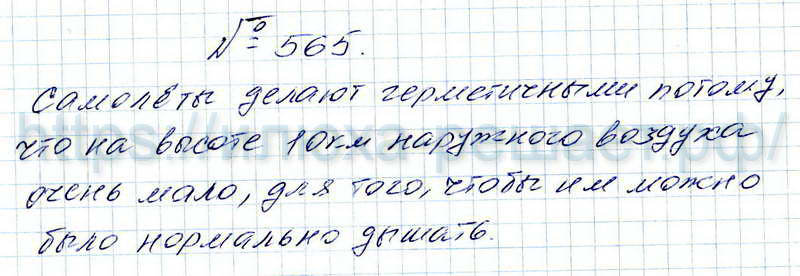 № 565.
Самолёты делают герметичными потому,
что на высоте 10км наружного воздуха
очень мало, для того, чтобы им можно
было нормально дышать.